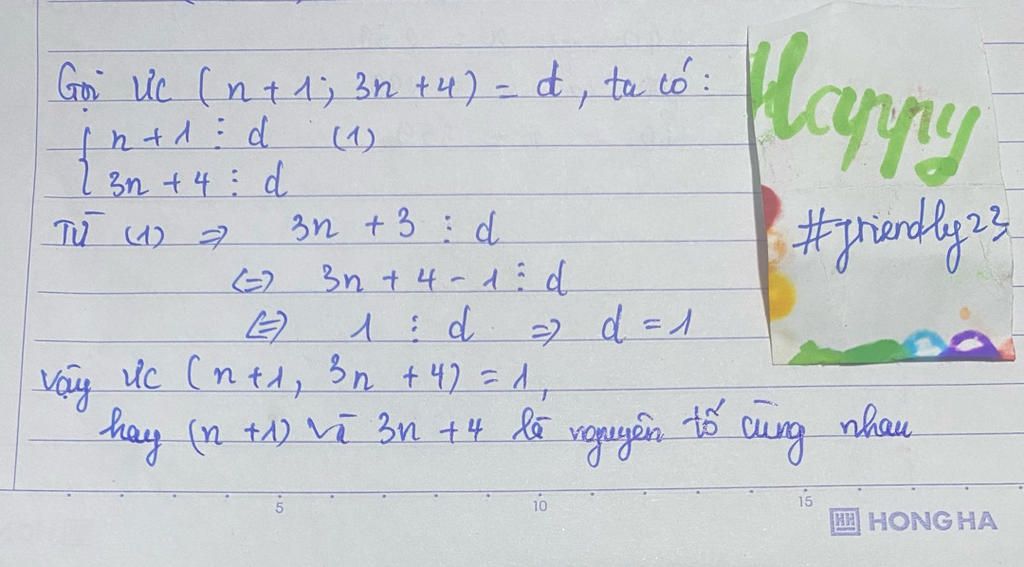 Gọi ƯC (n + 1; 3n + 4) = d, ta có:
{ n + 1 ⋮ d (1)
3n + 4 ⋮ d
Từ (1) ⇒ 3n + 3 ⋮ d
⇔ 3n + 4 - 1 ⋮ d
⇔ 1 ⋮ d ⇒ d = 1
Vậy ƯC (n+1, 3n + 4) = 1,
hay (n + 1) và 3n + 4 là nguyên tố cùng nhau
Happy
#friendly23
5 10 15
HH HONG HA